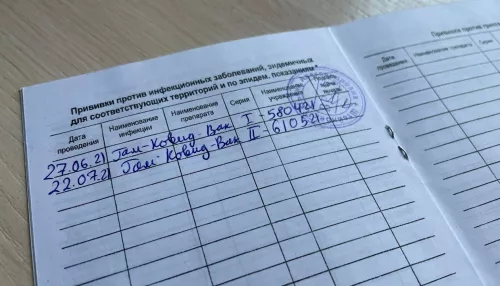 Прививки против инфекционных заболеваний, эндемичных
для соответствующих территорий и по эпидем. показаниям *
Дата проведения
Наименование инфекции
Наименование препарата
Серия
Наименование
27.06.21 Гам-Ковид-Вак I - 580421
22.07.21 Гам-Ковид-Вак II - 610521
Прививки против
Дата проведения
Наименование препарата
Серия